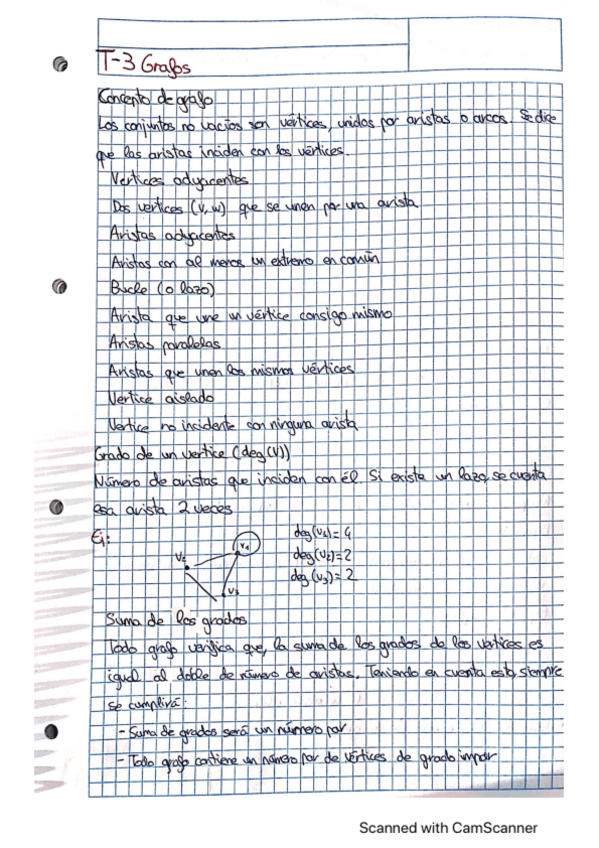 T-3 Grafos
Concepto de grafo
Los conjuntos no vacíos son vértices, unidos por aristas o arcos. Se dice
que las aristas inciden con los vértices.
Vertices adyacentes
Dos vertices (v,w) que se unen por una arista
Aristas adyacentes
Aristas con al menos un extremo en común
Bucle (o lazo)
Arista que une un vértice consigo mismo
Aristas paralelas
Aristas que unen los mismos vértices
Vertice aislado
Vertice no incidente con ninguna arista
Grado de un vertice (deg(V))
Número de aristas que inciden con él. Si existe un lazo, se cuenta
esa arista 2 veces
Ej:
V2
V1
V3
deg(V1)= 4
deg(V2)= 2
deg(V3)= 2
Suma de los grados
Todo grafo verifica que, la suma de los grados de los vertices es
igual al doble de número de aristas. Teniendo en cuenta esto, siempre
se cumplirá:
- Suma de grados será un número par
- Todo grafo contiene un número par de vértices de grado impar
Scanned with CamScanner